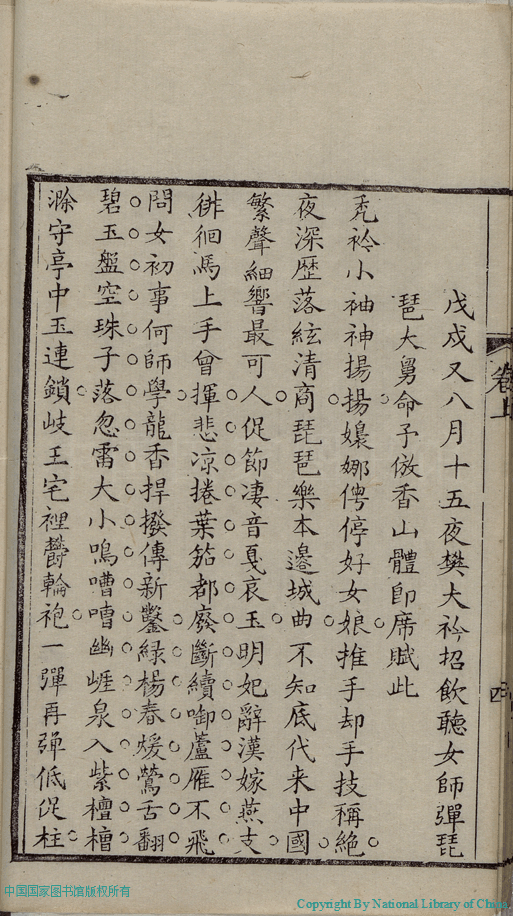 卷上
四
戊戌又八月十五夜樊大衿招飲聽女師彈琵
琶大舅命予倣香山體即席賦此
禿衿小袖神揚揚嬝娜俜停好女娘推手却手技稱絶
夜深歷落絃清商琵琶樂本邊城曲不知底代来中國
繁聲細響最可人促節凄音戛哀玉明妃辭漢嫁燕支
徘徊馬上手曾揮悲凉捲葉笳都廢斷續啣蘆雁不飛
問女初事何師學龍香捍撥傳新鑿緑楊春煖鶯舌翻
碧玉盤空珠子落忽雷大小鳴嘈嘈幽崖泉入紫檀槽
滁守亭中玉連鎖岐王宅裡欝輪袍一彈再彈低促柱
中国国家图书馆版权所有
Copyright By National Library of China